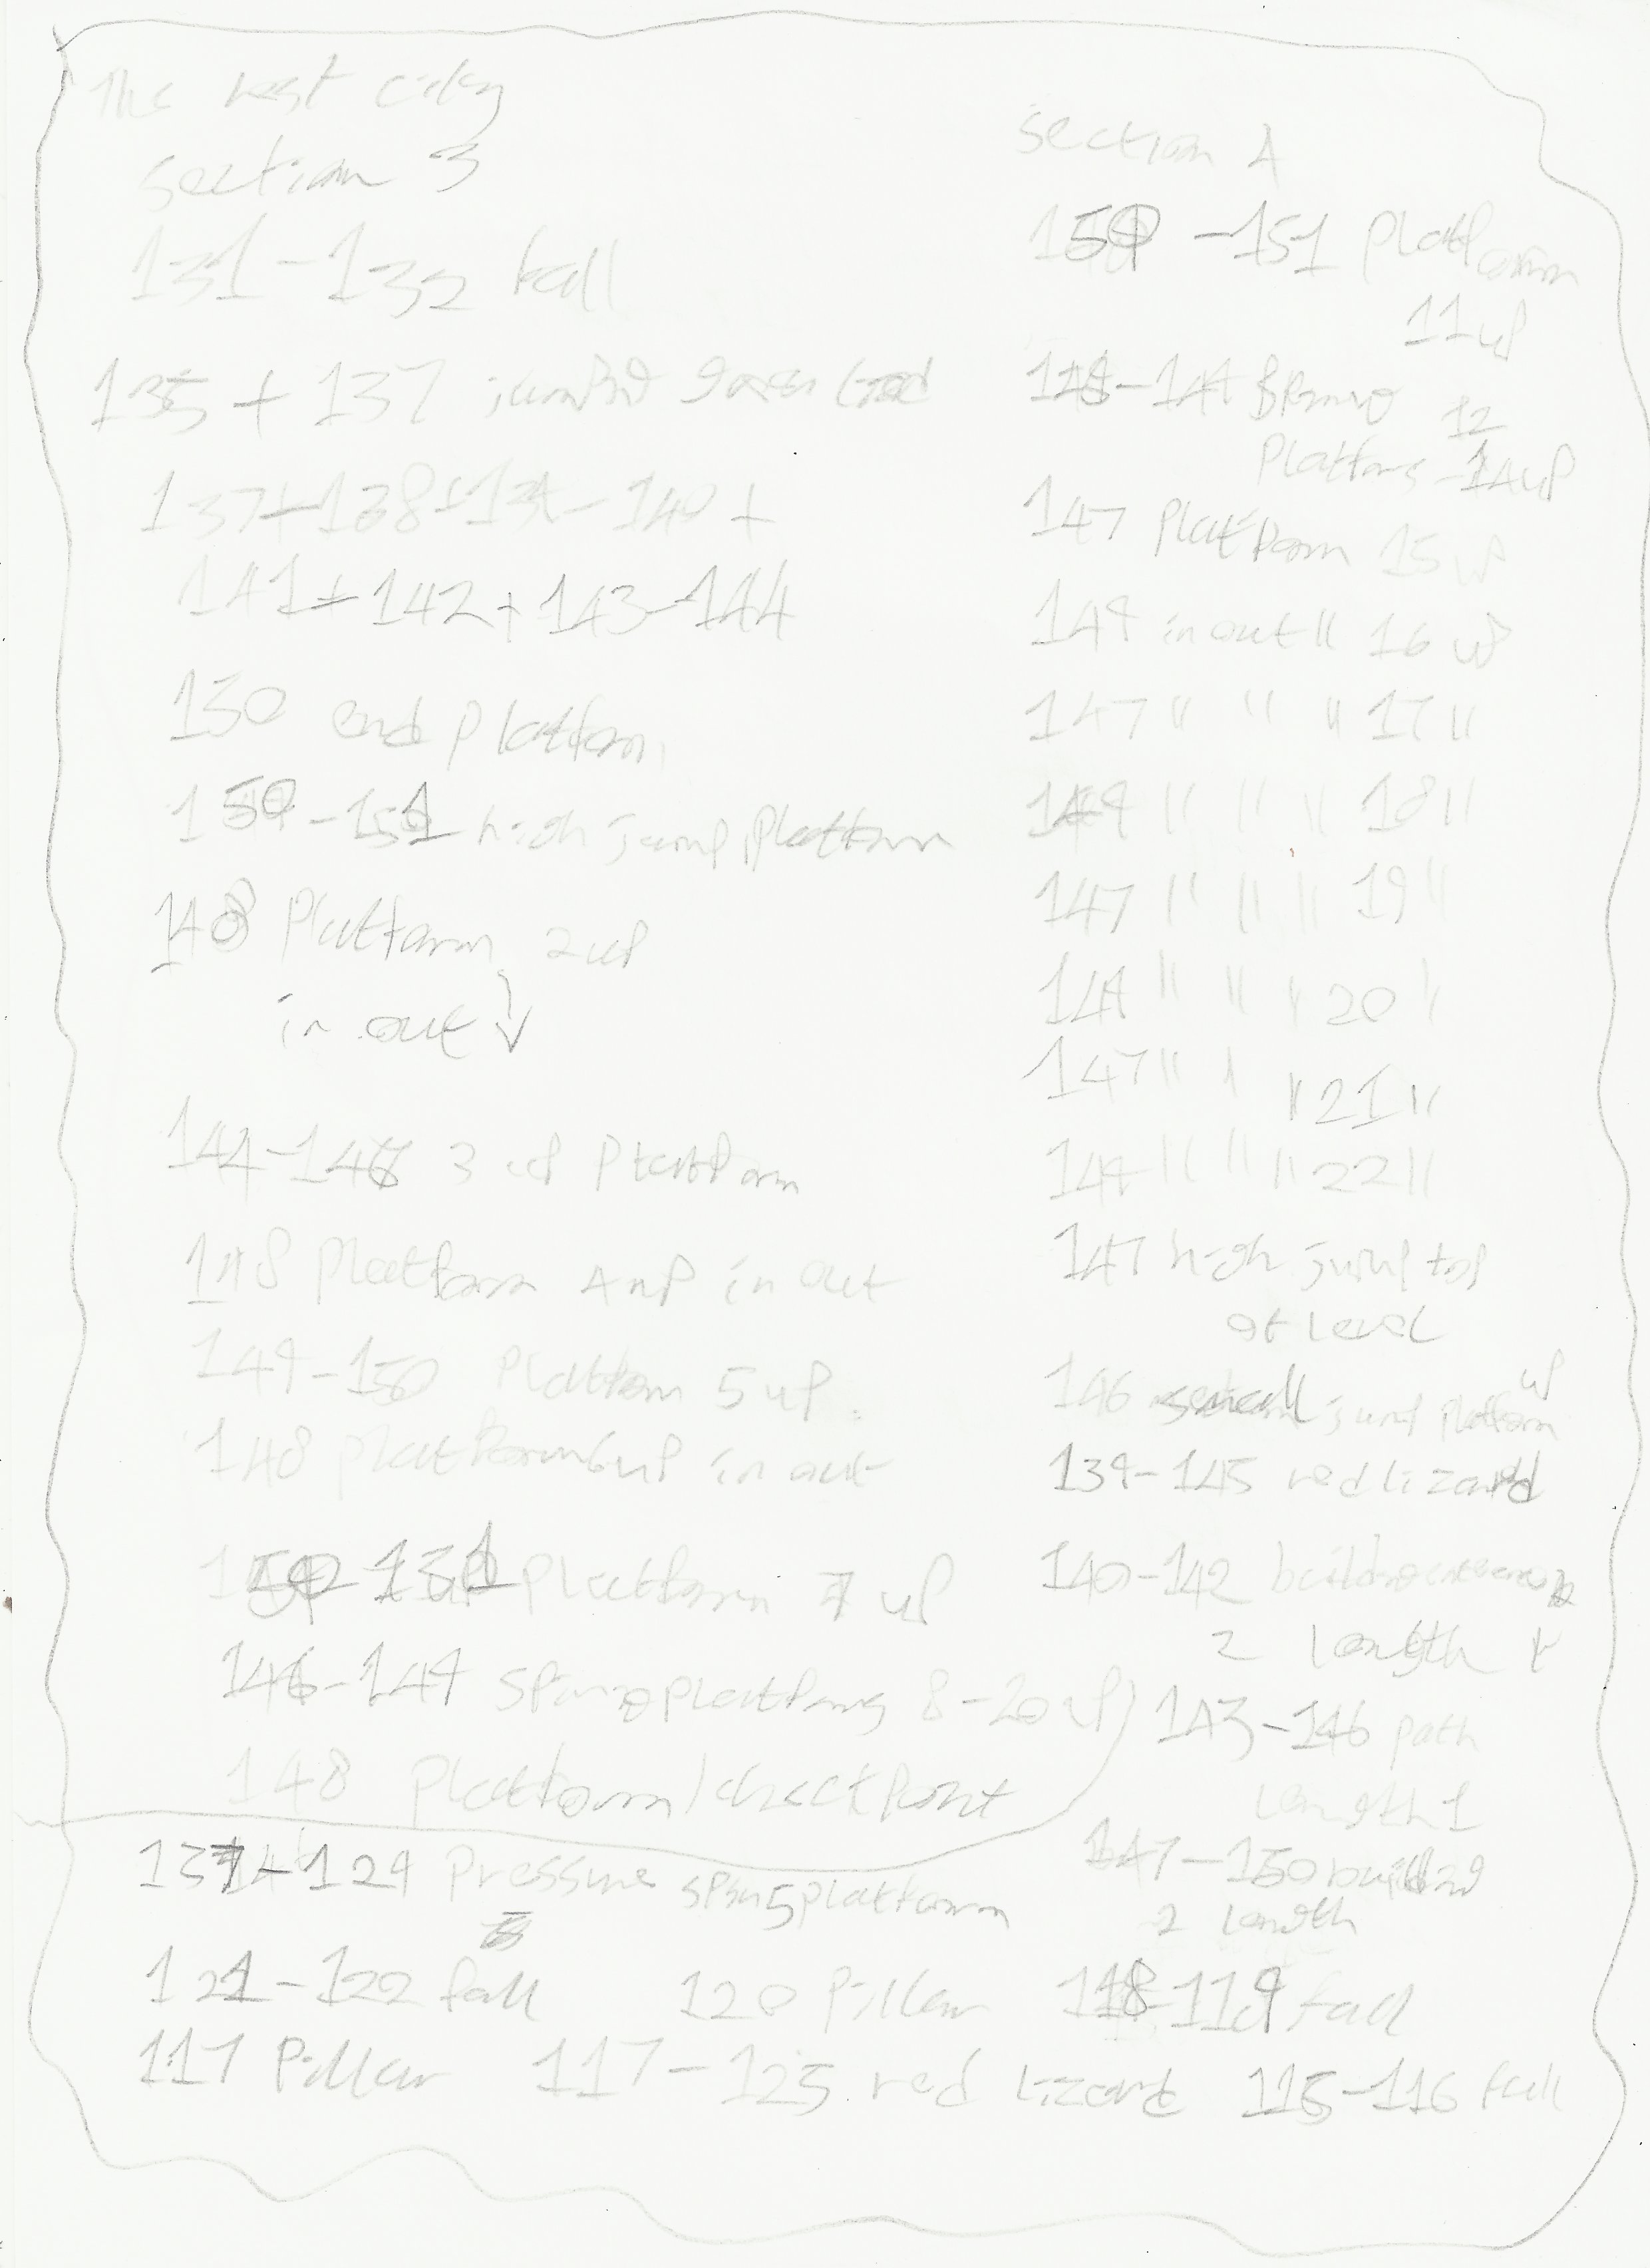 The rest city
section 3
131-132 fall
135 + 137 jumping
137+138+139-140+
141+142+143-144
150 end platform
150-151 high jump platform
148 platform 2 up
in out ↓
144-146 3 up platform
148 platform 4 up in out
149-150 platform 5 up
148 platform 6 up in out
150-151 platform 7 up
146-149 spring platforms 8-20 up
148 platform/checkpoint
section 4
150-151 platform
11 up
spring 12
platforms -14 up
147 platform 15 up
149 in out 11 16 up
147 " " " 17 "
149 " " " 18 "
147 " " " 19 "
149 " " " 20 "
147 " " " 21 "
149 " " " 22 "
147 high jump top
of level
146 small jump platform up
139-145 red lizard
140-142 building
2 length
143-146 path
length 1
147-150 building
2 length
129 pressure spin 5 platform
121-122 fall 120 pillar 118-119 fall
117 pillar 117-125 red lizard 115-116 fall